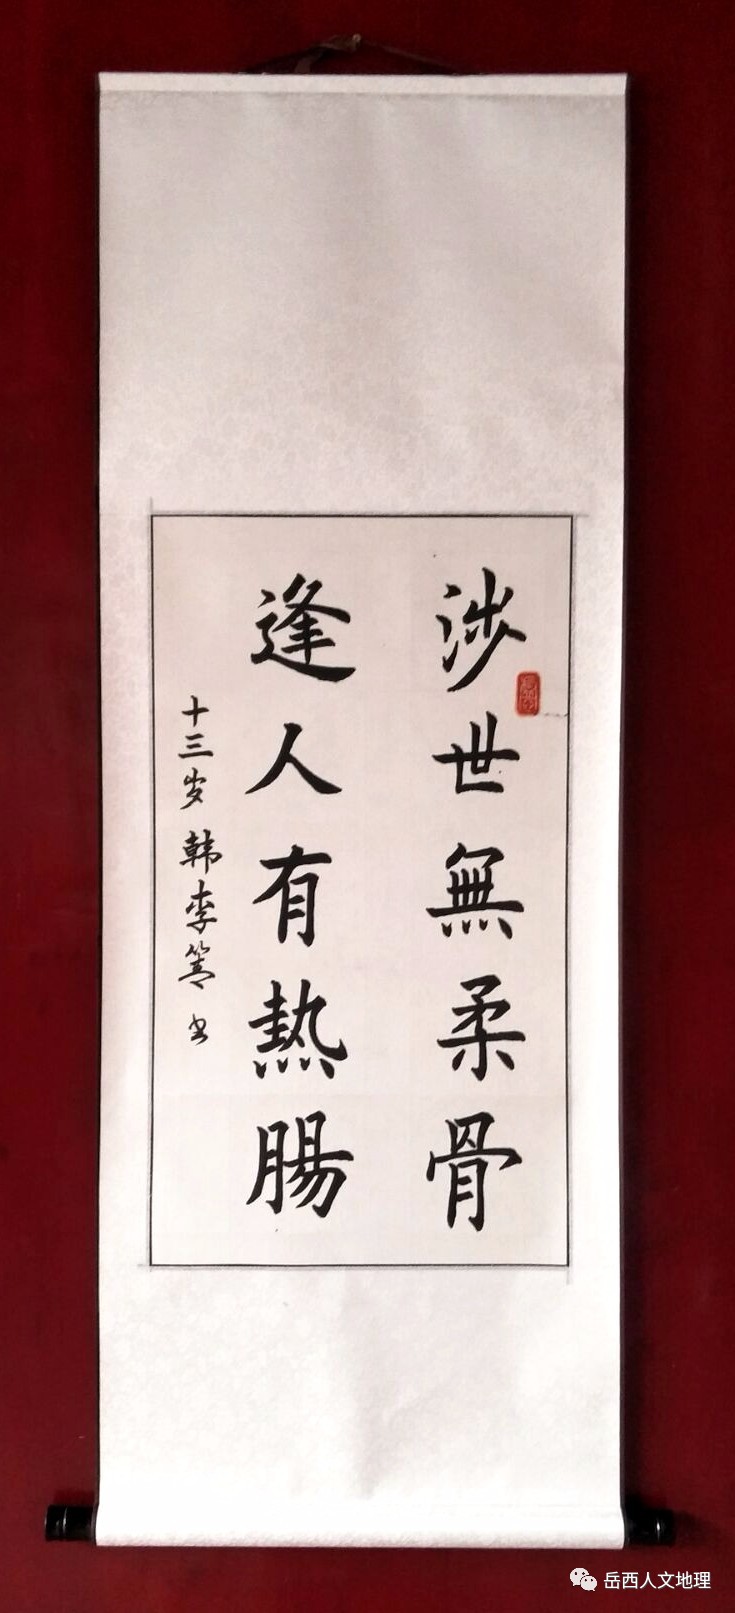 涉世無柔骨
逢人有热腸
十三岁 韩李 书
岳西人文地理